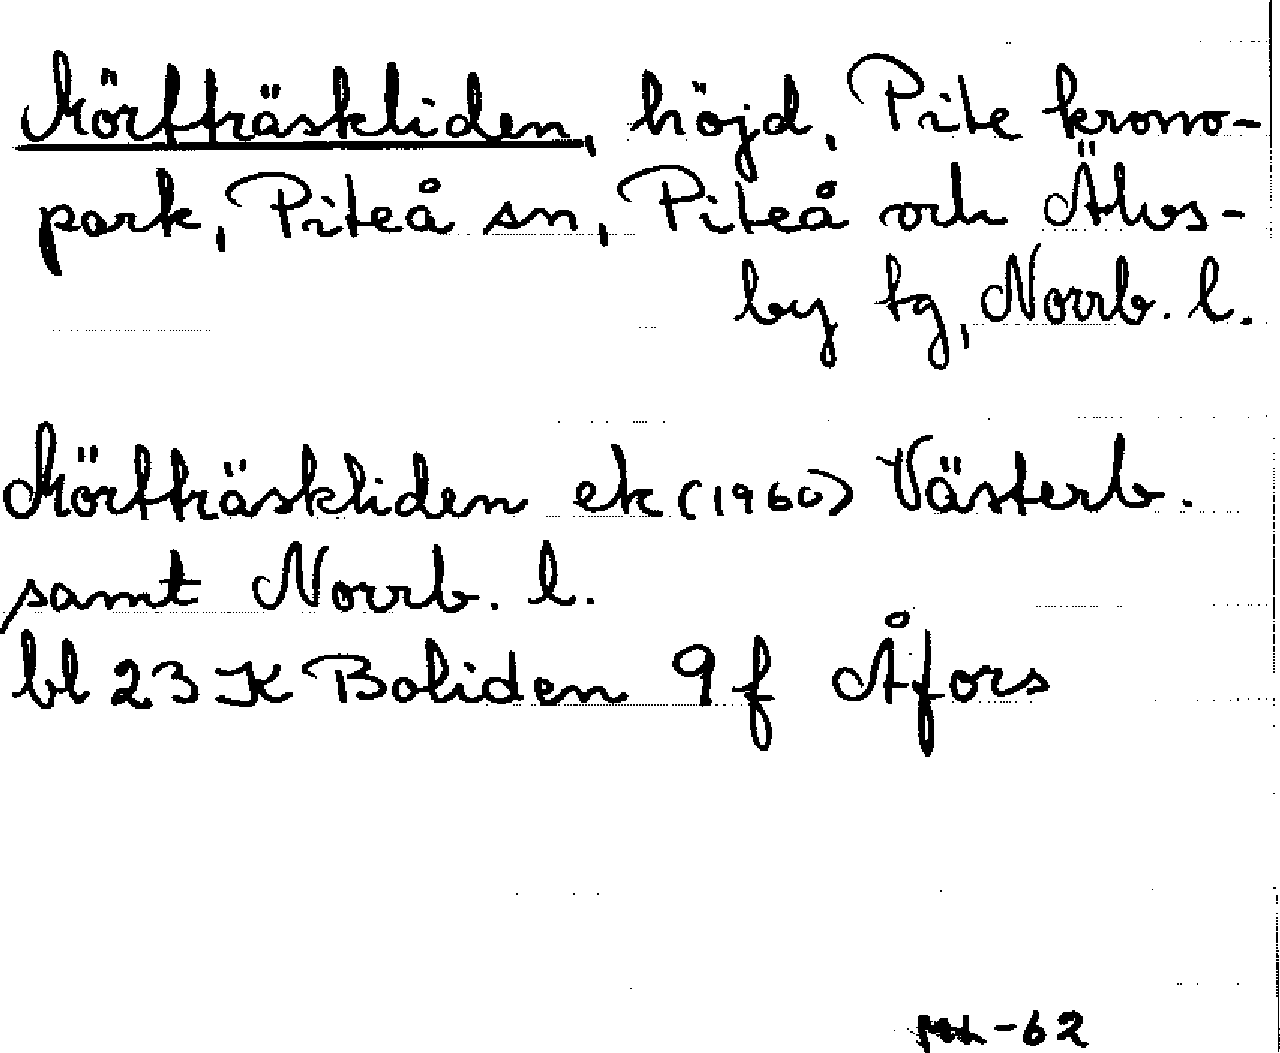 Mörtträskliden, höjd, Pite krono-
park, Piteå sn, Piteå och Älvs-
by tg, Norrb. l.
Mörtträskliden ek (1960) Västerb.
samt Norrb. l.
bl 23 K Boliden 9 f Åfors
-62